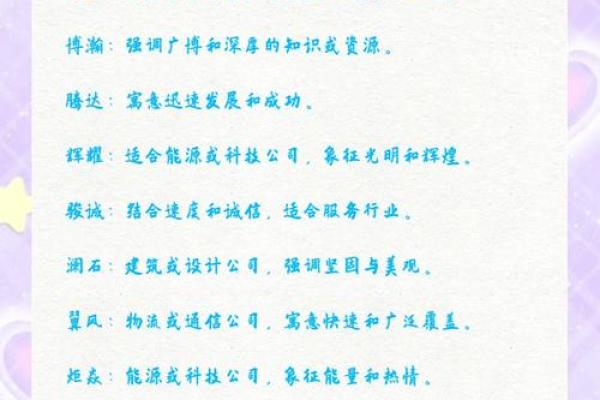 博瀚：强调广博和深厚的知识或资源。
腾达：寓意迅速发展和成功。
辉耀：适合能源或科技公司，象征光明和辉煌。
骏诚：结合速度和诚信，适合服务行业。
澜石：建筑或设计公司，强调坚固与美观。
翼风：物流或通信公司，寓意快速和广泛覆盖。
炬焱：能源或科技公司，象征能量和热情。